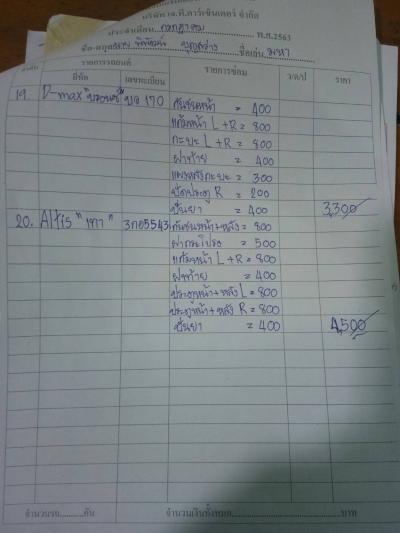 บริษัท เจ.ที.คาร์เซ็นเตอร์ จำกัด
ประจำเดือน กรกฎาคม พ.ศ.2563
ชื่อ-สกุล บุญสว่าง ชื่อเล่น มหา
ลำดับ รายการรถยนต์ รายการซ่อม ว/ด/ป ราคา
ยี่ห้อ เลขทะเบียน
19. D-max "บรอนซ์" บอ 170 กันชนหน้า = 400
แก้มหน้า L+R = 800
กะบะ L+R = 800
ฝาท้าย = 400
แผงหลังกะบะ = 300
ปัดประตู R = 200
ปั่นยา = 400 3,300
20. Altis "เทา" 3กอ5543 กันชนหน้า+หลัง = 800
ฝากระโปรง = 500
แก้มหน้า L+R = 800
ฝาท้าย = 400
ประตูหน้า+หลัง L = 800
ประตูหน้า+หลัง R = 800
ปั่นยา = 400 4,500
จำนวนรถ..........คัน จำนวนเงินทั้งหมด..............................บาท